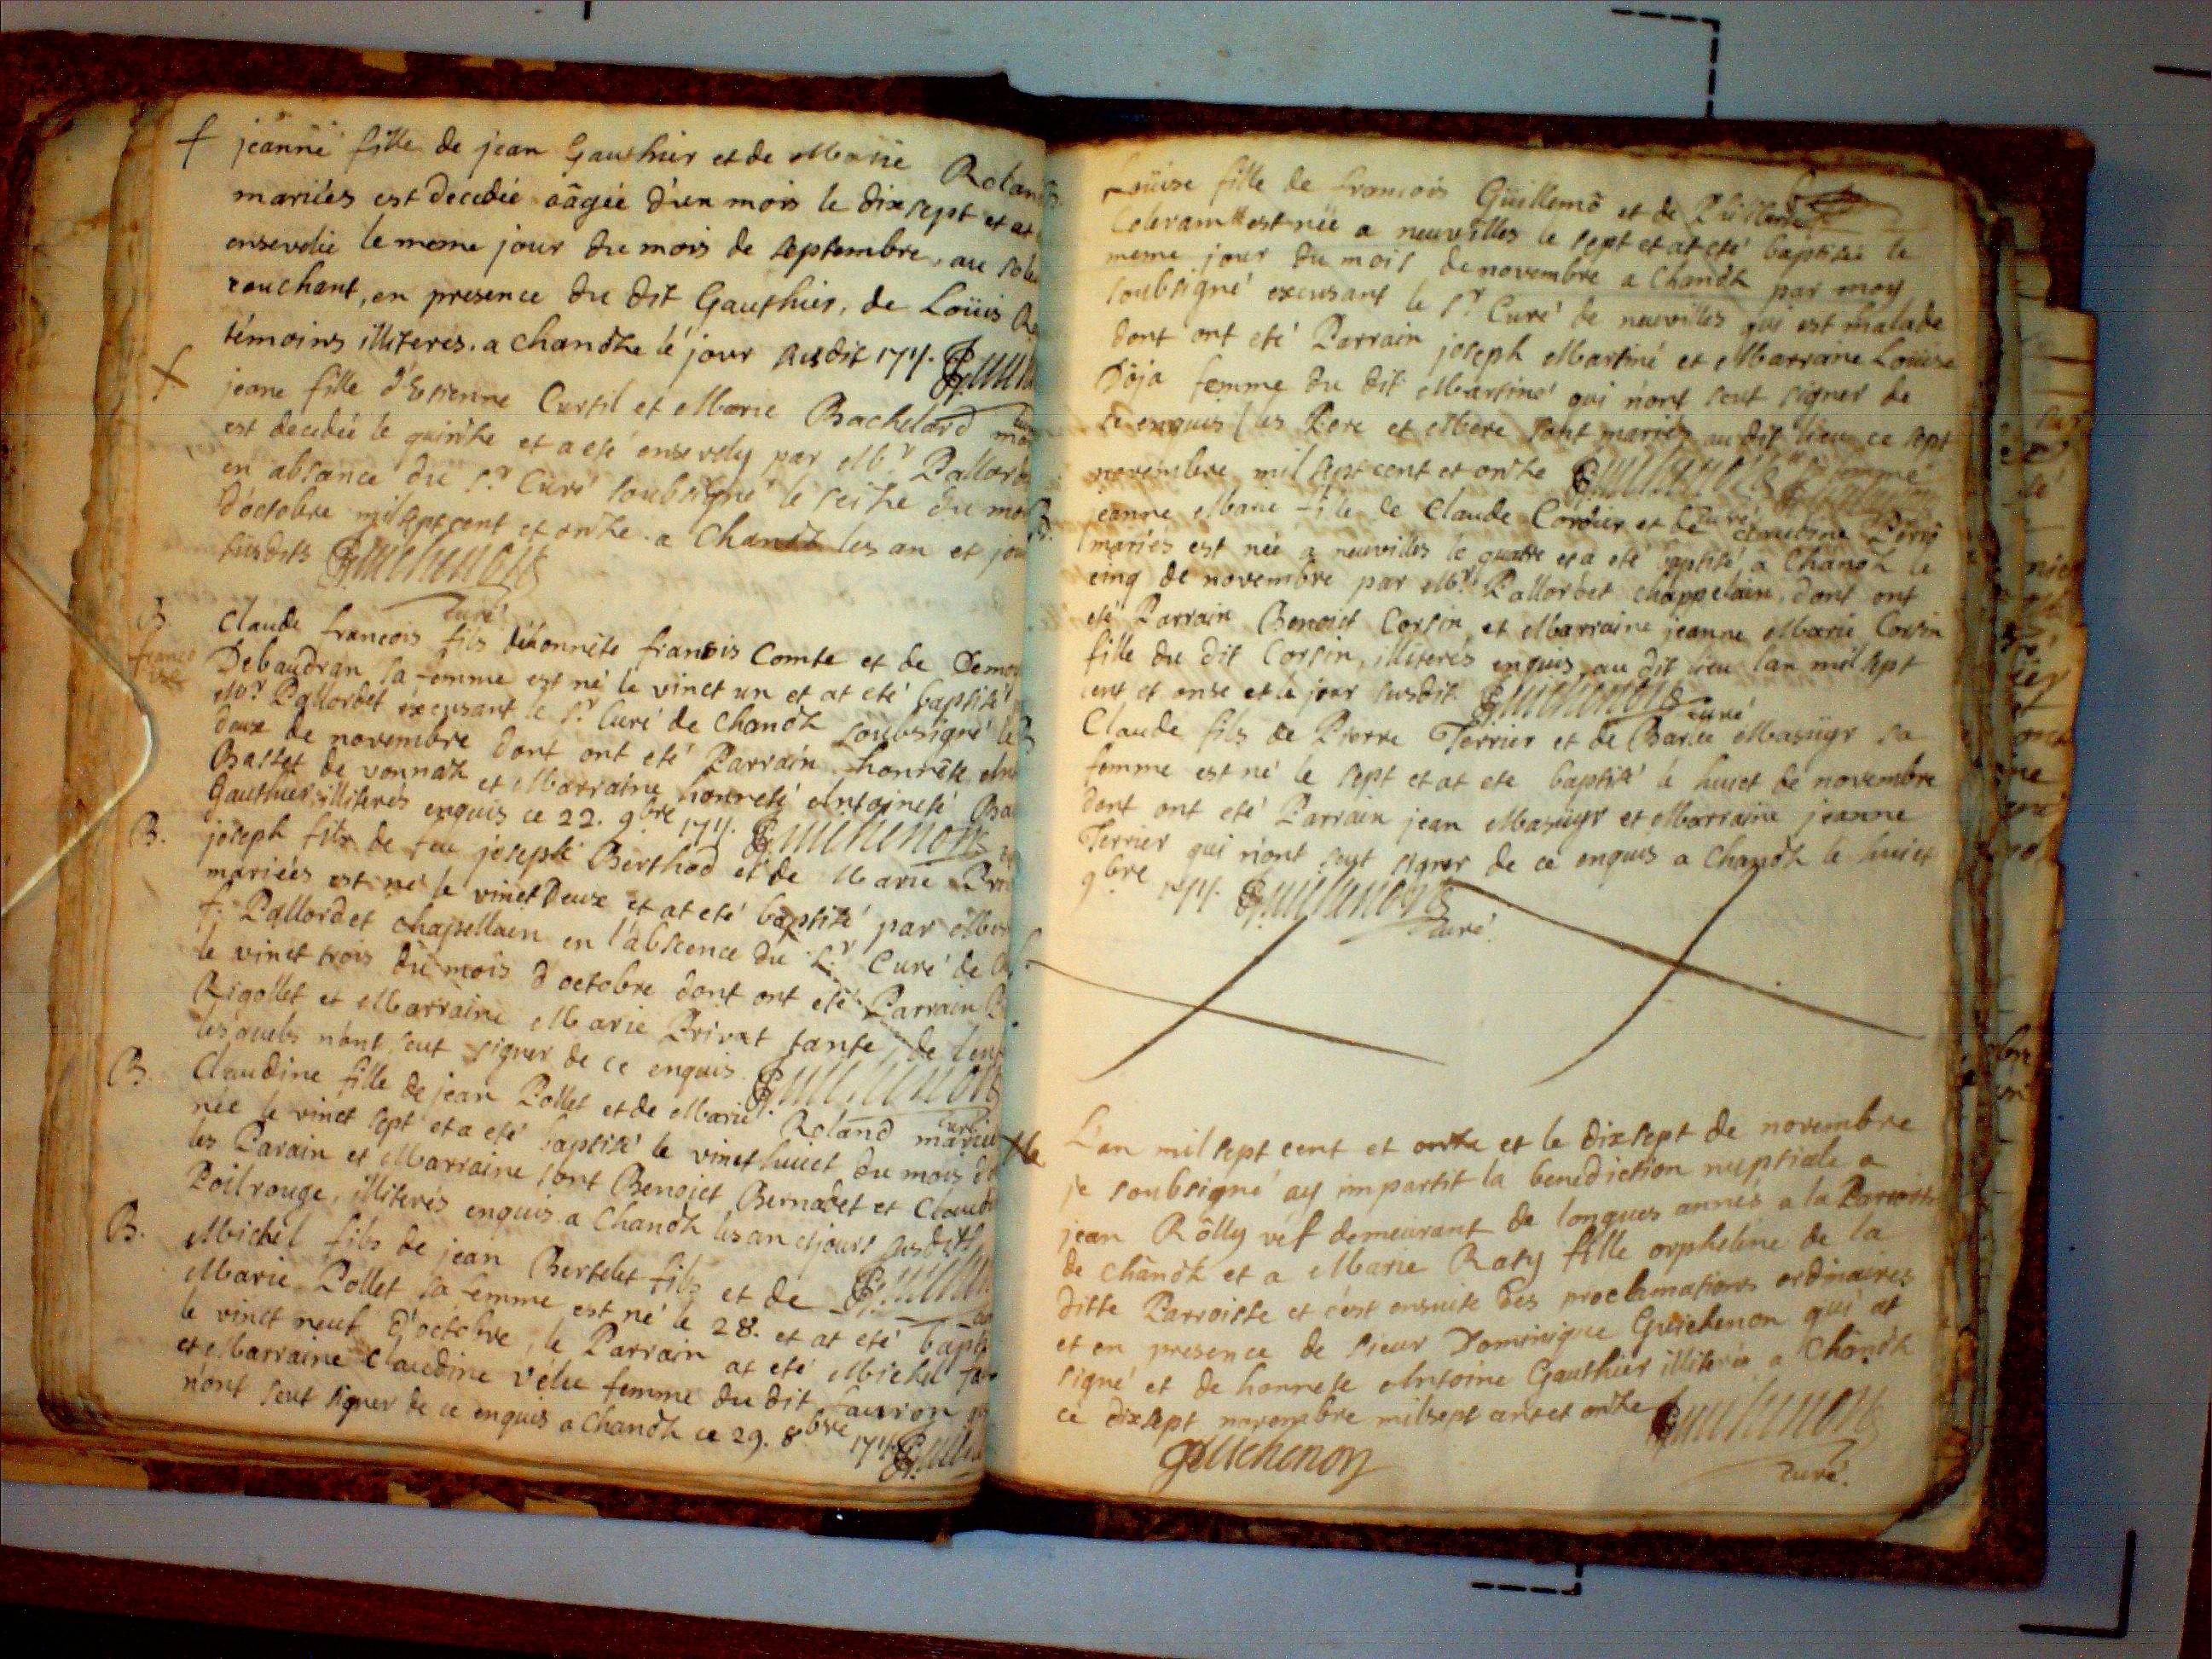 jeanne fille de jean Gauthier et de Marie Rolan
mariées est decedée aâgée d'un mois le dix sept et at
ensevelie le meme jour du mois de septembre, au
couchant, en presence du dit Gauthier, de Loüis
témoins illiteres. a Chanoz le jour susdit 1711.
jeane fille d'Etienne Curtil et Marie Bachelard
est decedée le quinze et a eté ensevely par Mr. Pallord
en absance du Sr. Curé soubsigné le seize du
d'octobre mil sept cent et onze. a Chanoz les an et jou
susdits Guichenon
curé
B.
Claude francois fils d'honnête francois Comte et de
Debaudran sa femme est né le vinct un et at eté baptisé
Mr. Pallordet éxcusant le Sr. Curé de Chanoz soubsigné le
deux de novembre dont ont eté Parrain honnête
Bastet de vonnaz et Marraine honneté Antoineté
Gauthier, illiterés enquis ce 22. 9bre 1711. Guichenon
B.
joseph fils de feu joseph Berthod et de Marie
mariées est né le vinct deux et at eté baptisé par
f. Pallordet chapellain en l'abscence du Sr. Curé de
le vinct trois du mois d'octobre dont ont eté Parrain
Rigollet et Marraine Marie Privat tante, de l'en
lesquels n'ont seut signer de ce enquis. Guichenon
B.
Claudine fille de jean Pollet et de Marie Roland
née le vinct sept et a eté baptisé le vinct huict du mois
les Parain et Marraine sont Benoict Bernadet et
Poilrouge, illiterés enquis a Chanoz les an et jours susdits
B.
Michel fils de jean Bertelet fils et de
Marie Pollet sa femme est né le 28. et at eté bapti
le vinct neuf d'octobre, le Parrain at eté Michel
et Marraine Claudine vélu femme du dit
n'ont seut signer de ce enquis a Chanoz ce 29. 8bre 1711
Loüise fille de francois Guillemo et de
est née a neuvilles le sept et at eté baptisée le
meme jour du mois de novembre a Chanoz par moy
soubsigné excusant le Sr. Curé de neuvilles qui est malade
dont ont eté Parrain joseph Martiné et Marraine Louise
Dôja femme du dit Martiné qui n'ont seut signer de
ce enquis les Pere et Mere sont mariés au dit lieu ce sept
novembre mil sept cent et onze Guichenon
curé
jeanne Marie fille de Claude Cordier et de Claudine
mariés est née a neuvilles le quatre et a eté baptisé, a Chanoz le
cinq de novembre par Mr. Pallordet chappelain, dont ont
eté Parrain Benoist Corsin, et Marraine jeanne Marie Corsin
fille du dit Corsin, illiterés enquis, au dit lieu l'an mil sept
cent et onse et le jour susdit Guichenon
curé
Claude fils de Pierre Terrier et de Masuyr sa
femme est né le sept et at ete baptisé le huict de novembre
dont ont eté Parrain jean Masuyr et Marraine jeanne
Terrier qui n'ont seut signer de ce enquis a Chanoz le huict
9bre 1711. Guichenon
curé.
L'an mil sept cent et onze et le dix sept de novembre
je soubsigné ay impartit la benediction nuptiale a
jean Rôlly vef demeurant de longues annés a la Parroisse
de Chanoz et a Marie Raty fille orpheline de la
ditte Parroisse et c'est ensuite des proclamations ordinaires
et en presence de sieur Dominique Guichenon qui at
signé et de honnete Antoine Gauthier illiterés a Chanoz
ce dix sept novembre mil sept cent et onze Guichenon
Guichenon
curé.